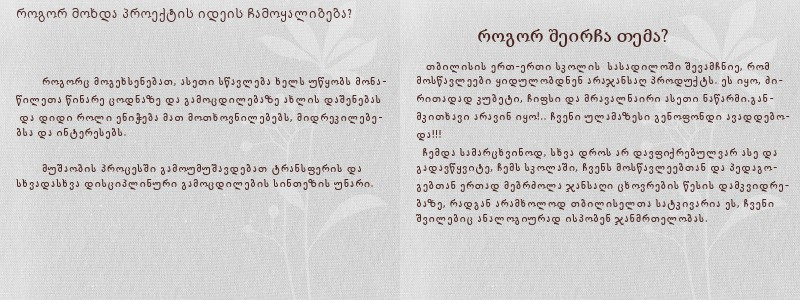 როგორ მოხდა პროექტის იდეის ჩამოყალიბება?
როგორც მოგეხსენებათ, ასეთი სწავლება ხელს უწყობს მონა-
წილეთა წინარე ცოდნაზე და გამოცდილებაზე ახლის დაშენებას
და დიდი როლი ენიჭება მათ მოთხოვნილებებს, მიდრეკილებე-
ბსა და ინტერესებს.
მუშაობის პროცესში გამოუმუშავდებათ ტრანსფერის და
სხვადასხვა დისციპლინური გამოცდილების სინთეზის უნარი.
როგორ შეირჩა თემა?
თბილისის ერთ-ერთი სკოლის სასადილოში შევამჩნიე, რომ
მოსწავლეები ყიდულობდნენ არაჯანსაღ პროდუქტს. ეს იყო, მი-
რითადად კუბეტი, ჩიფსი და მრავალნაირი ასეთი ნაწარმი.გან-
მკითხავი არავინ იყო!.. ჩვენი ულამაზესი გენოფონდი ავადდებო-
და!!!
ჩემდა სამარცხვინოდ, სხვა დროს არ დავფიქრებულვარ ასე და
გადავწყვიტე, ჩემს სკოლაში, ჩვენს მოსწავლეებთან და პედაგო-
გებთან ერთად მებრძოლა ჯანსაღი ცხოვრების წესის დამკვიდრე-
ბაზე, რადგან არამხოლოდ თბილისელთა სატკივარია ეს, ჩვენი
შვილებიც ანალოგიურად ისპობენ ჯანმრთელობას.